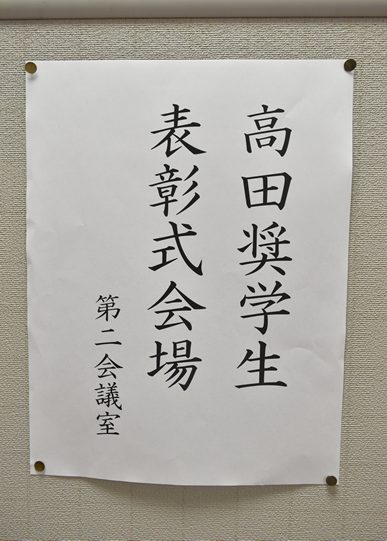 高田奨学生
表彰式会場
第二会議室